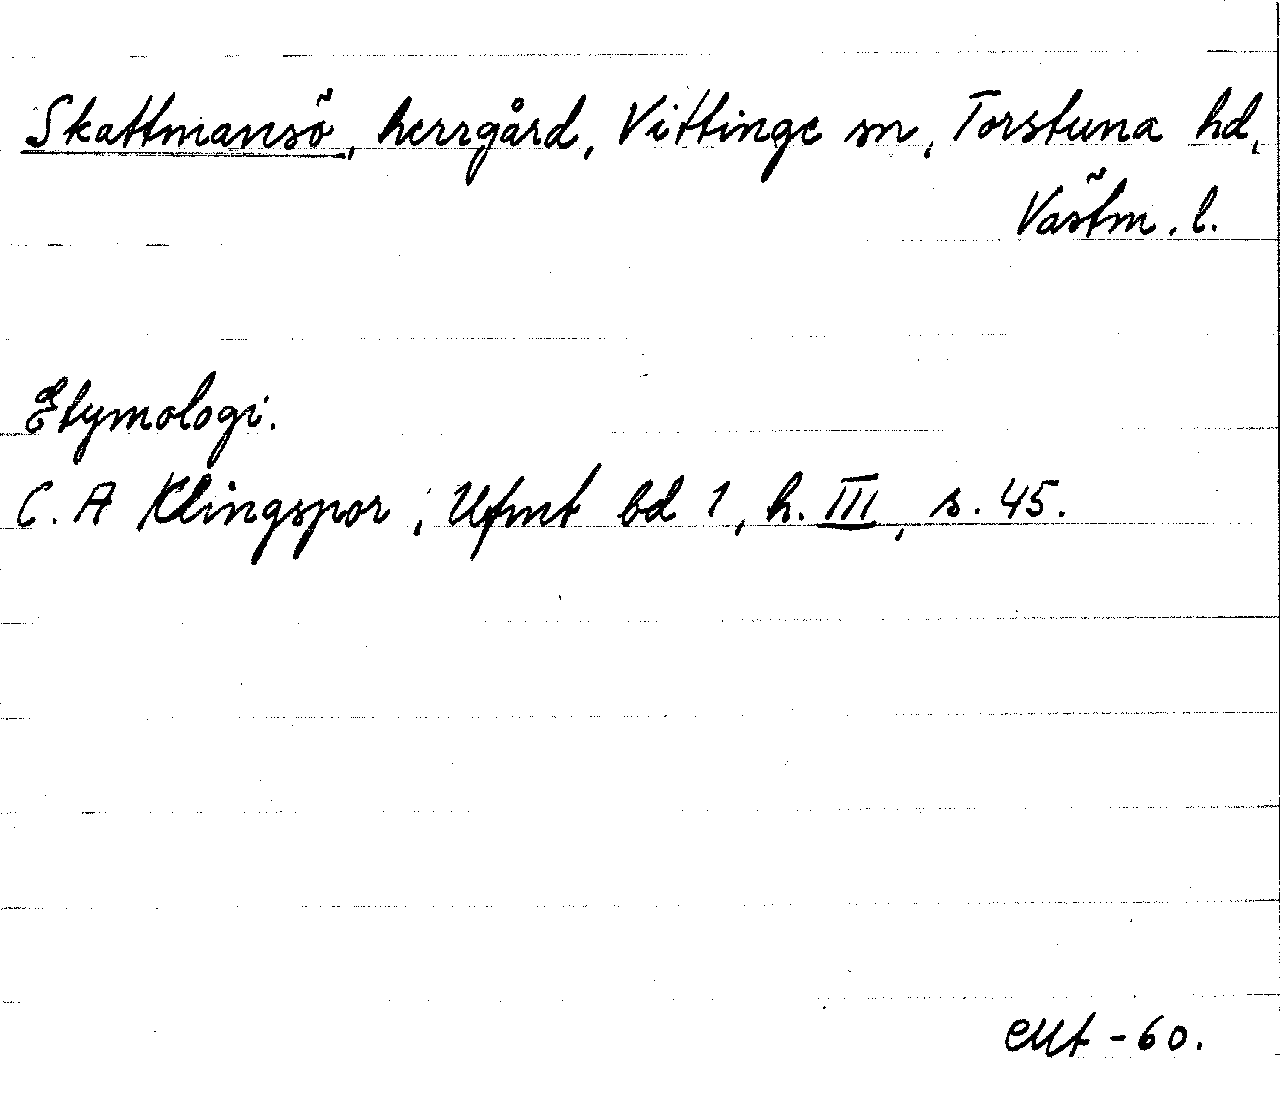 Skattmansö, herrgård, Vittinge sn, Torstuna hd,
Västm. l.
Etymologi.
C. A Klingspor, Ufmt bd 1, h. III, s. 45.
-60.